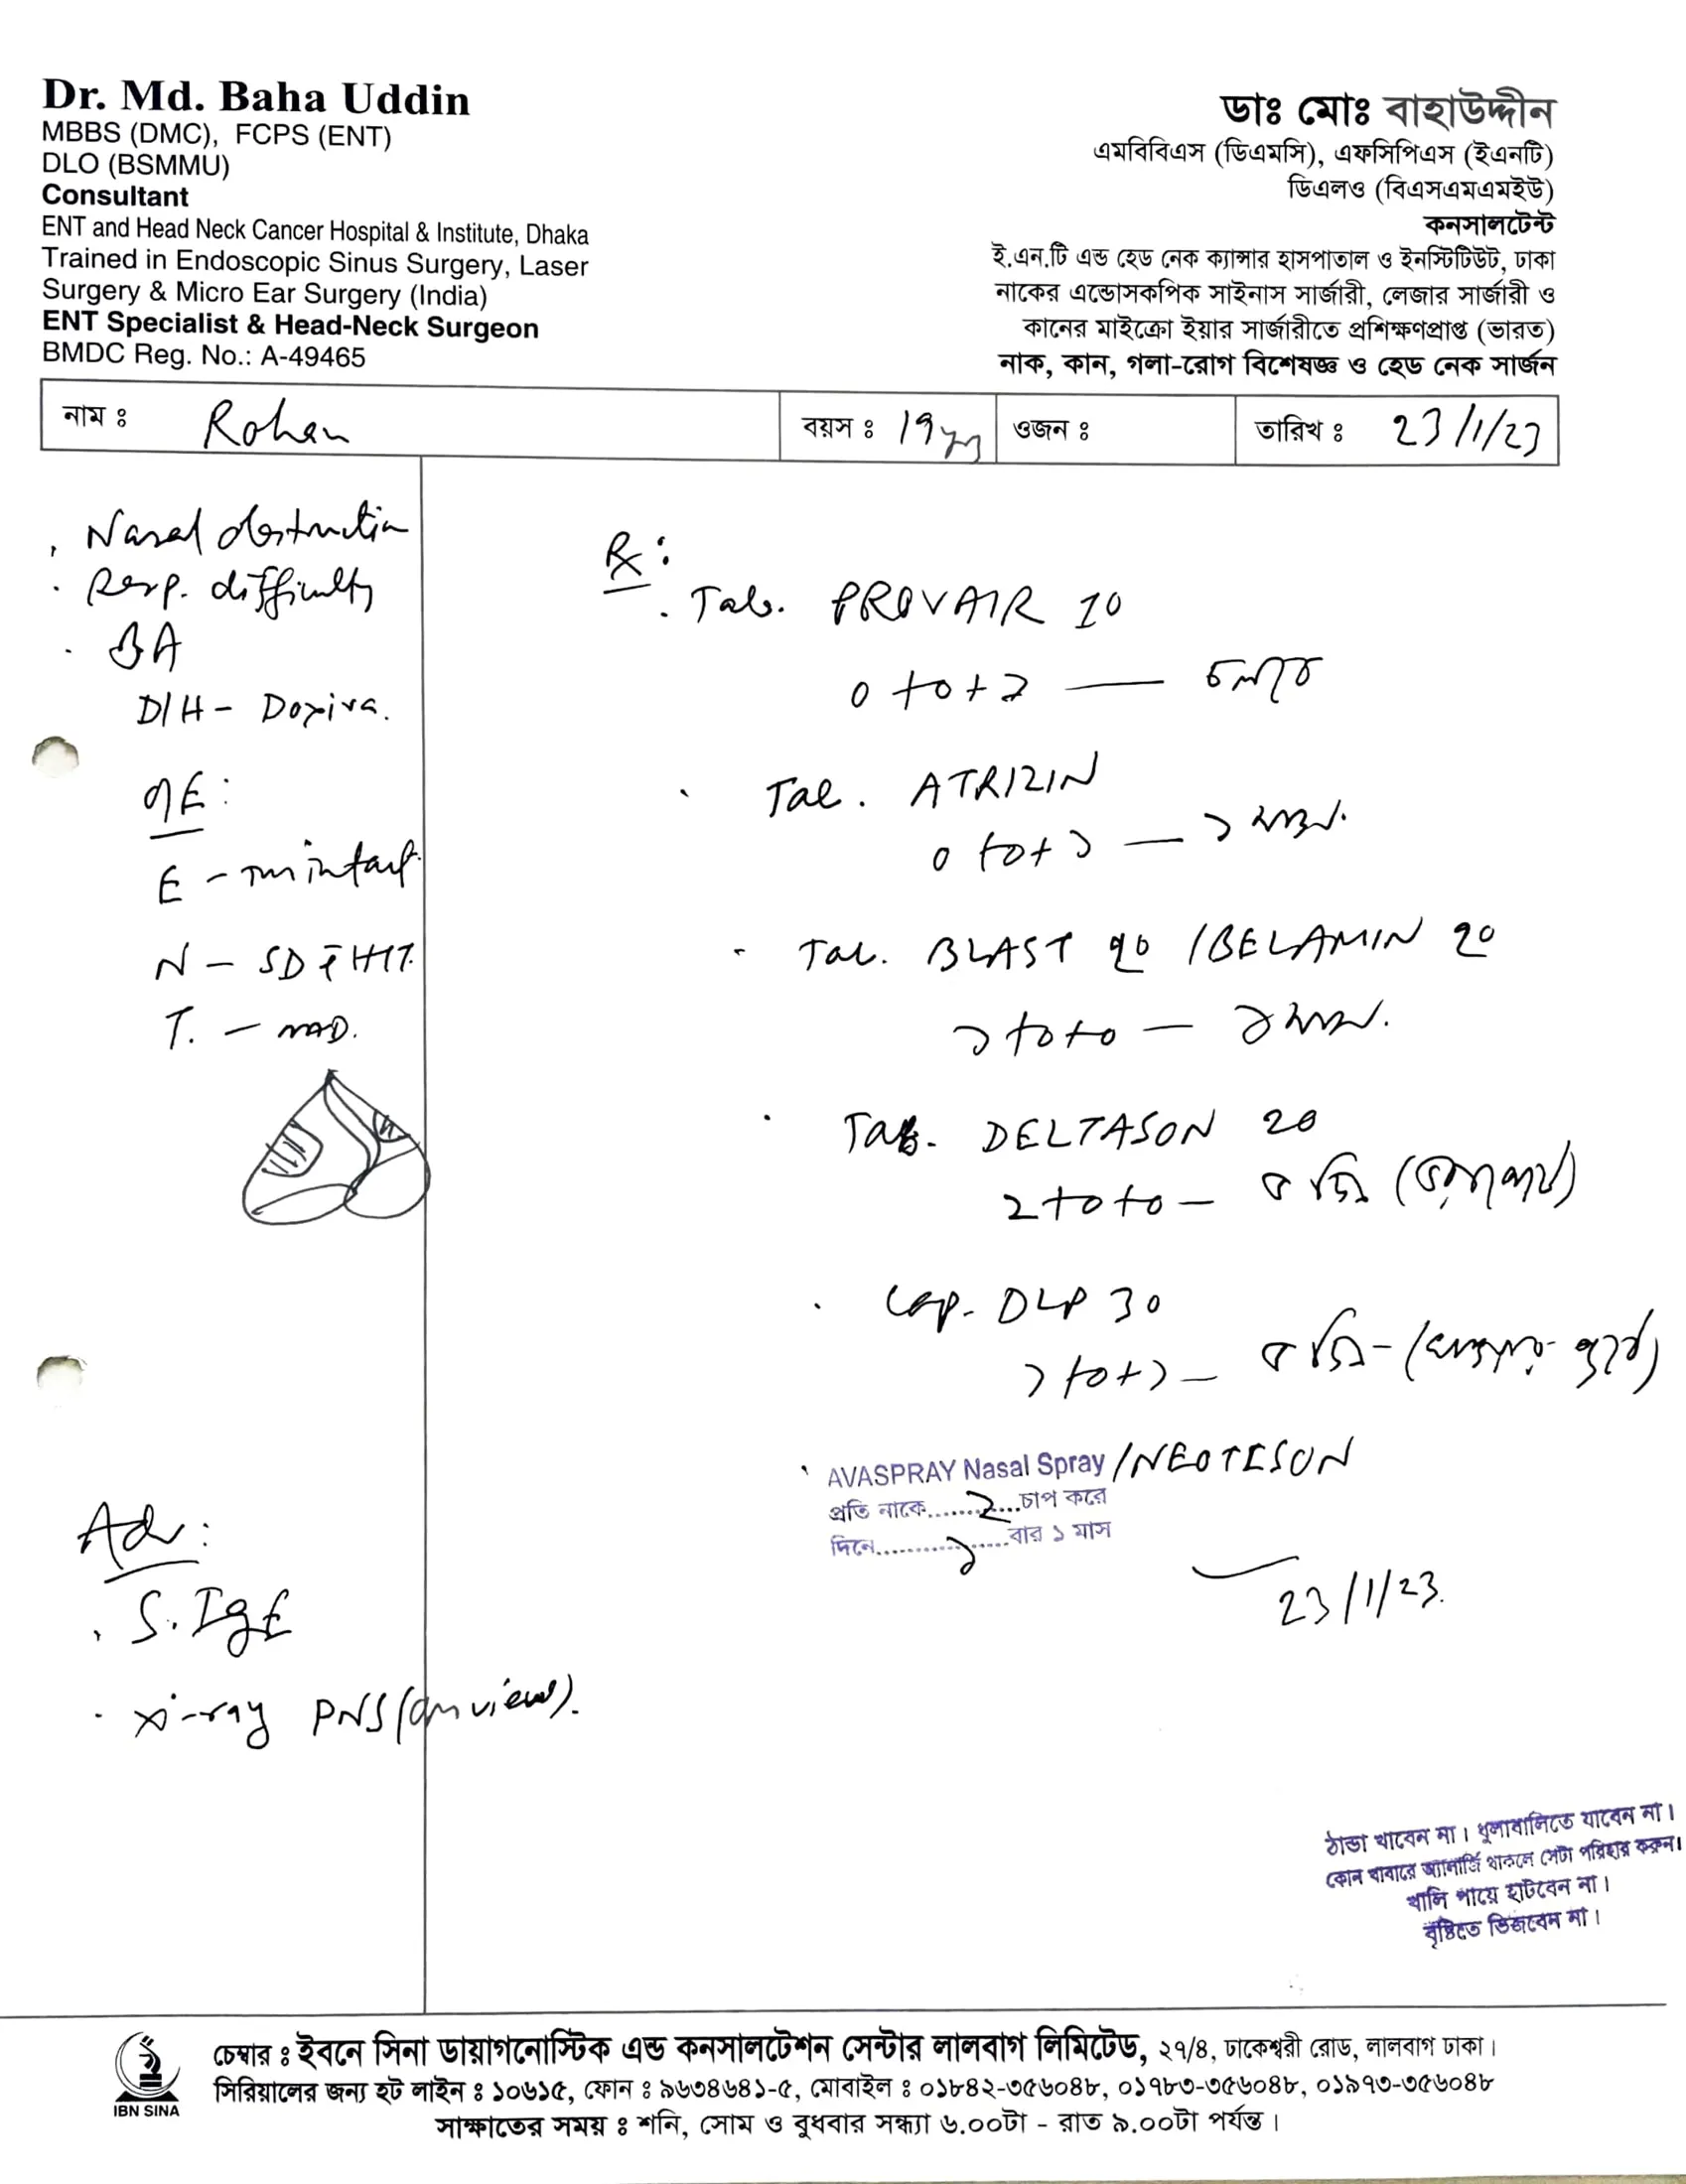 Dr. Md. Baha Uddin
MBBS (DMC), FCPS (ENT)
DLO (BSMMU)
Consultant
ENT and Head Neck Cancer Hospital & Institute, Dhaka
Trained in Endoscopic Sinus Surgery, Laser
Surgery & Micro Ear Surgery (India)
ENT Specialist & Head-Neck Surgeon
BMDC Reg. No.: A-49465
ডাঃ মোঃ বাহাউদ্দীন
এমবিবিএস (ডিএমসি), এফসিপিএস (ইএনটি)
ডিএলও (বিএসএমএমইউ)
কনসালটেন্ট
ই.এন.টি এন্ড হেড নেক ক্যান্সার হাসপাতাল ও ইনস্টিটিউট, ঢাকা
নাকের এন্ডোসকপিক সাইনাস সার্জারী, লেজার সার্জারী ও
কানের মাইক্রো ইয়ার সার্জারীতে প্রশিক্ষণপ্রাপ্ত (ভারত)
নাক, কান, গলা-রোগ বিশেষজ্ঞ ও হেড নেক সার্জন
নাম ঃ Rohan বয়স ঃ 19 ওজন ঃ তারিখ ঃ 23/1/23
Nasal obstruction
Resp. difficulty
BA
D/H - Doxiva.
O/E:
E - TM intact
N - SD c̄ HIT.
T. - NAD.
Adv:
S. IgE
X-ray PNS (om view).
Rx:
Tab. PROVAIR 10
0+0+১ — চলবে
Tab. ATRIZIN
0+0+১ — ১ মাস.
Tab. BLAST 20 / BELAMIN 20
১+0+0 — ১ মাস.
Tab. DELTASON 20
2+0+0 — ৫ দিন (ভরাপেটে)
Cap. DLP 30
১+0+১ — ৫ দিন - (খাওয়ার পূর্বে)
AVASPRAY Nasal Spray / NEOTESON
প্রতি নাকে.......2...চাপ করে
দিনে..........১.....বার ১ মাস
23/1/23.
ঠান্ডা খাবেন না। ধুলাবালিতে যাবেন না।
কোন খাবারে অ্যালার্জি থাকলে সেটা পরিহার করুন।
খালি পায়ে হাটবেন না।
বৃষ্টিতে ভিজবেন না।
IBN SINA
চেম্বার ঃ ইবনে সিনা ডায়াগনোস্টিক এন্ড কনসালটেশন সেন্টার লালবাগ লিমিটেড, ২৭/৪, ঢাকেশ্বরী রোড, লালবাগ ঢাকা।
সিরিয়ালের জন্য হট লাইন ঃ ১০৬১৫, ফোন ঃ ৯৬৩৪৬৪১-৫, মোবাইল ঃ ০১৮৪২-৩৫৬০৪৮, ০১৭৮৩-৩৫৬০৪৮, ০১৯৭৩-৩৫৬০৪৮
সাক্ষাতের সময় ঃ শনি, সোম ও বুধবার সন্ধ্যা ৬.০০টা - রাত ৯.০০টা পর্যন্ত।